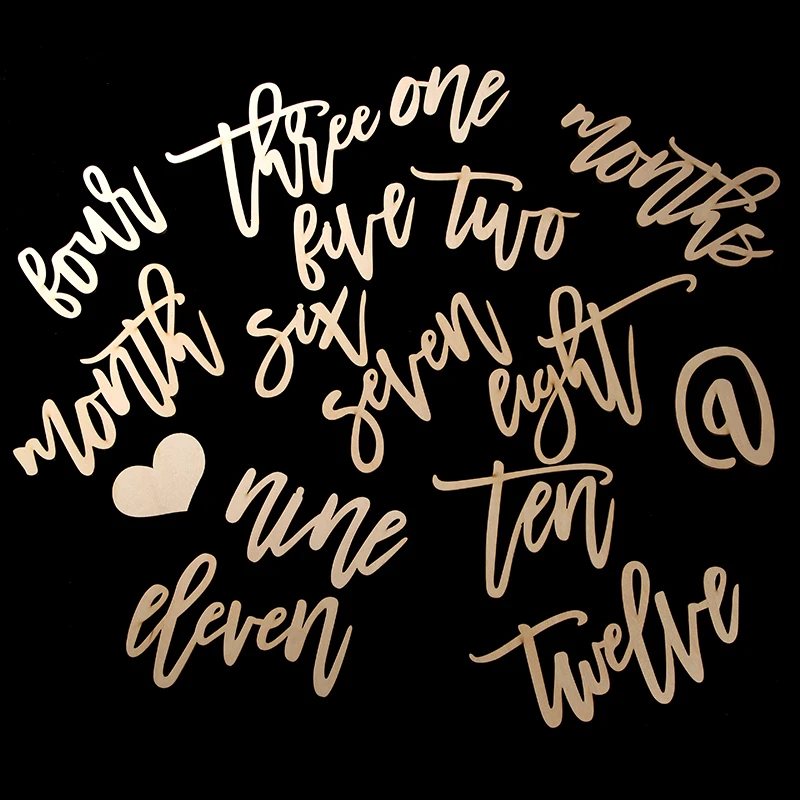 one
three
months
four
five
two
month
six
seven
eight
@
nine
ten
eleven
twelve